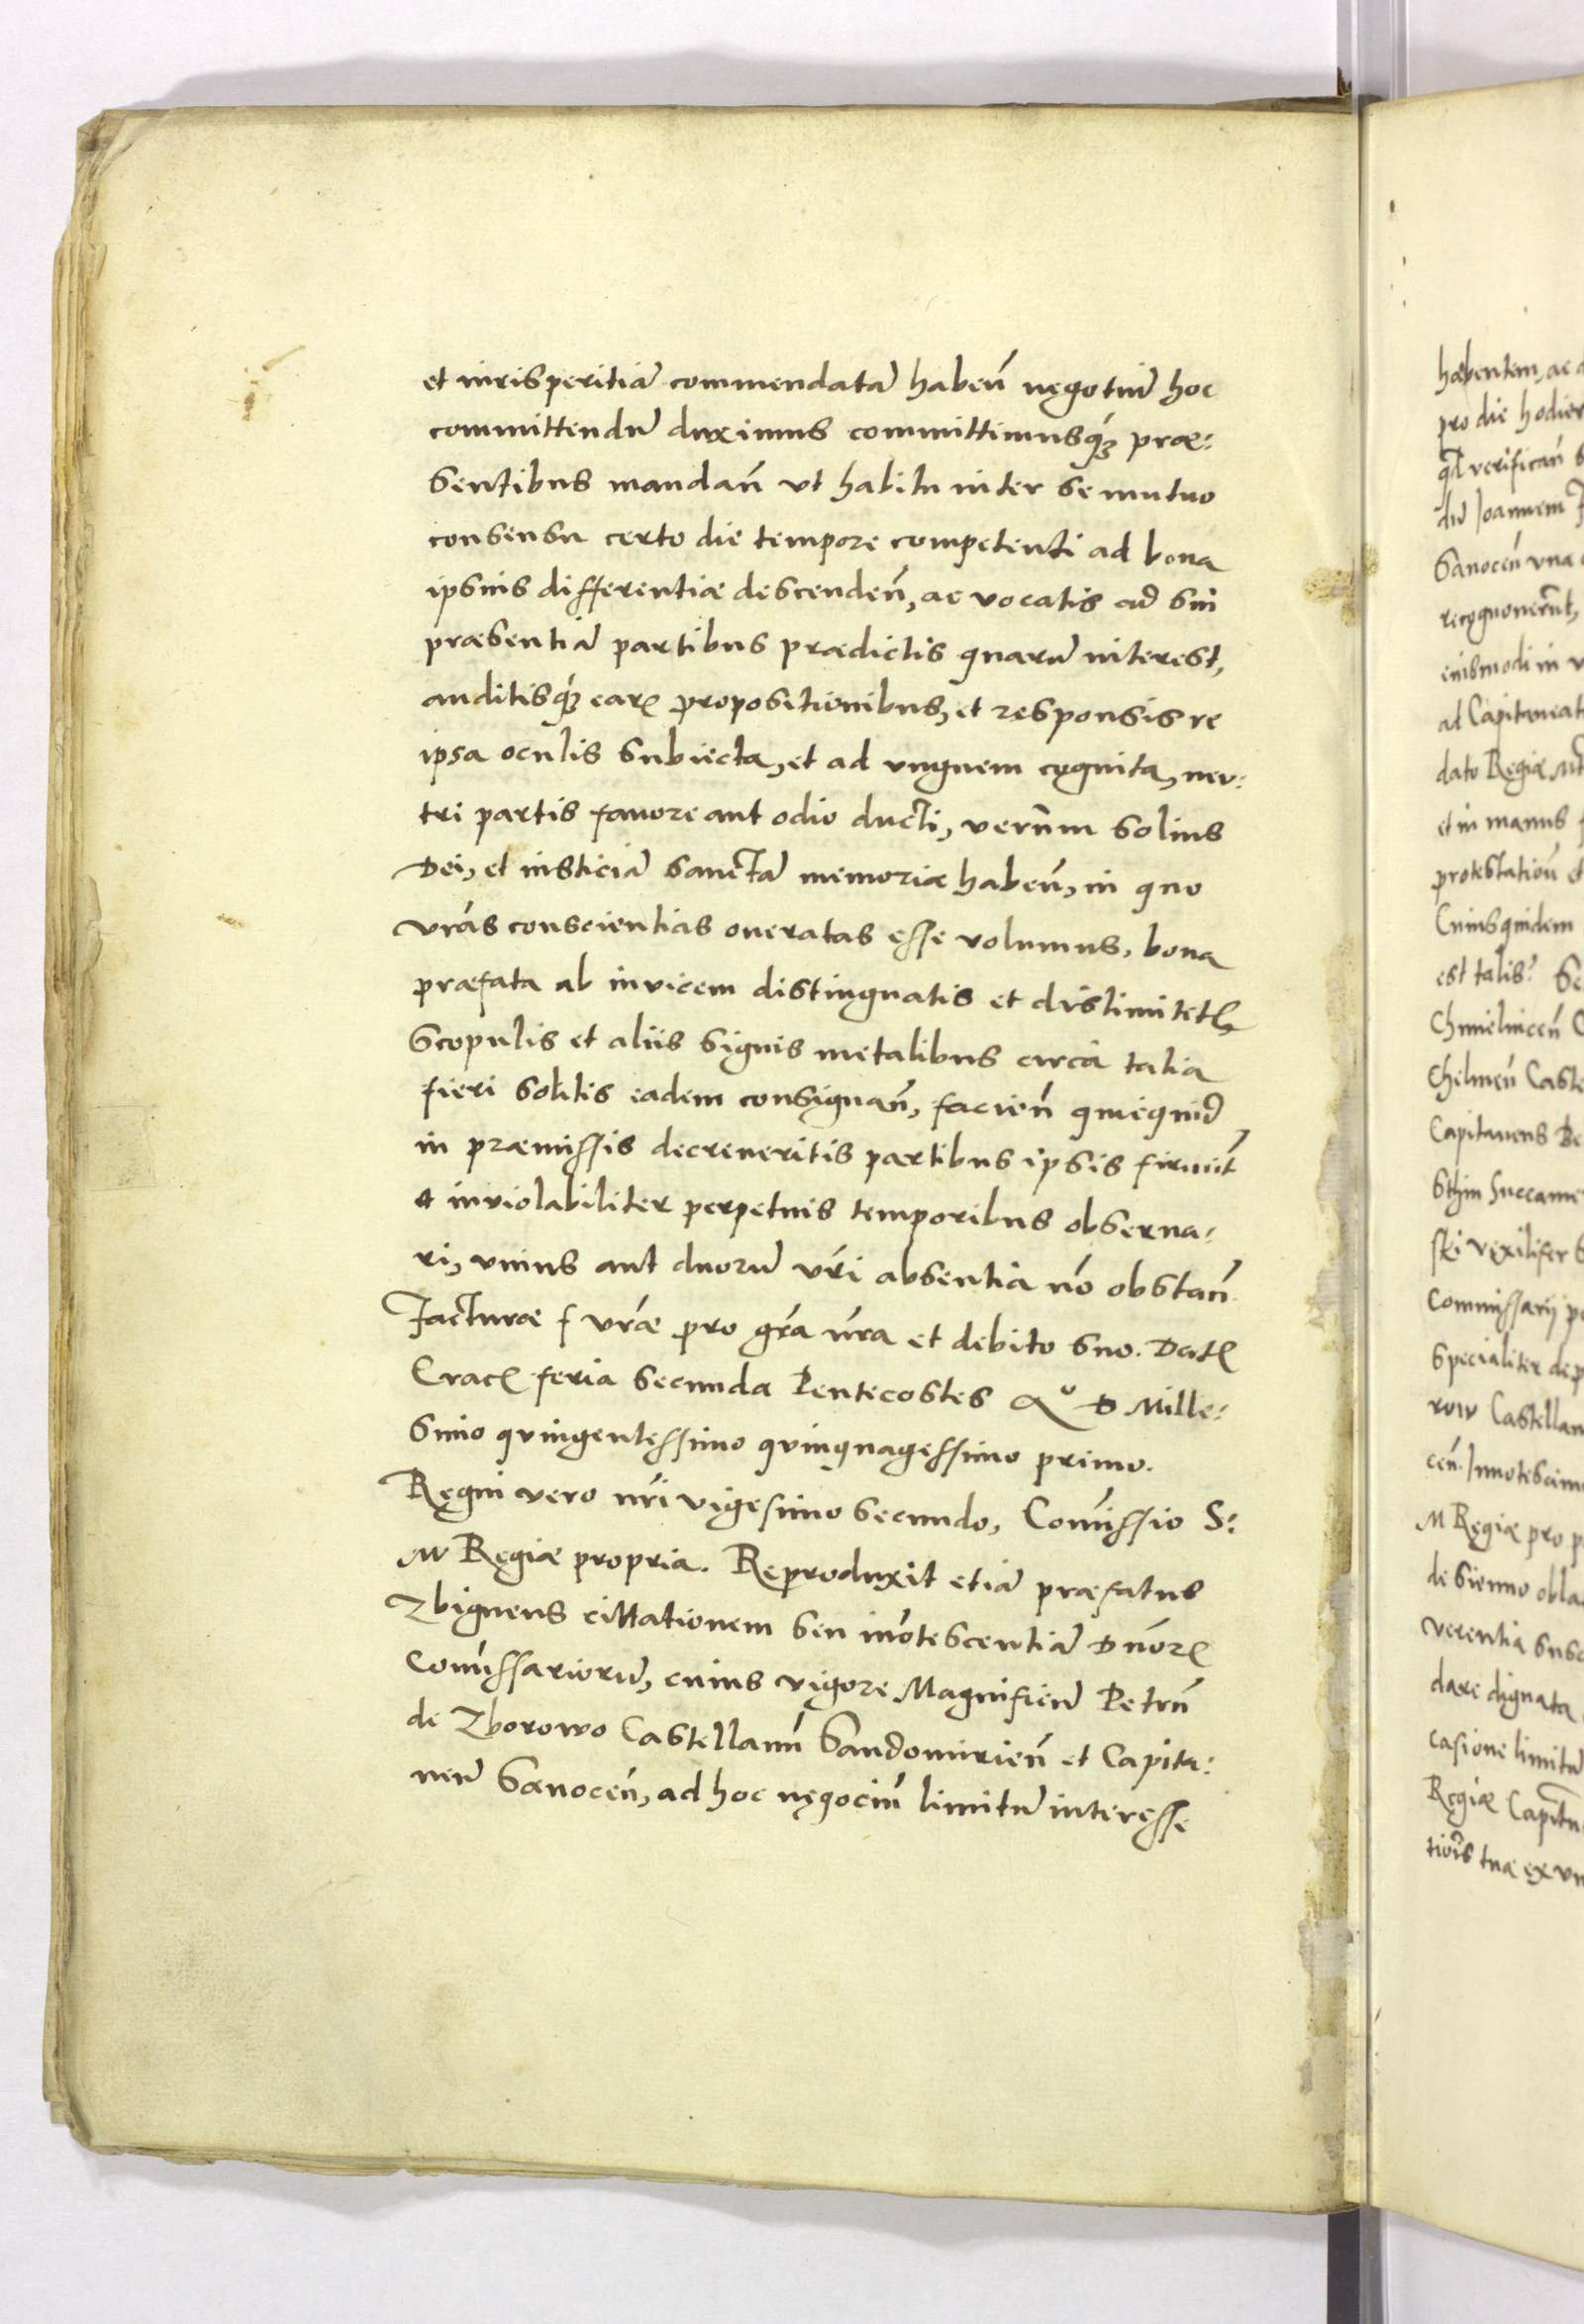 et iurisperitiã commendatã habeñ negotiũ hoc
committendũ duximus committimusq́ꝫ præ:
sentibus mandañ ut habitu inter se mutuo
consensu certo die tempore competenti ad bona
ipsius differentiæ descendeñ, ac vocatis ad sui
præsentiã partibus prædictis quarũ interest,
auditisq́ꝫ earꝝ propositionibus, et responsis re
ipsa oculis subiecta, et ad unguem cognita, neu:
tri partis fauore aut odio ducti, verum solius
Dei, et iusticiã sanctã memoriæ habeñ, in quo
vr̃as conscientias oneratas esse volumus, bona
præfata ab invicem distinguatis et dislimitetis
Scopulis et aliis signis metalibus circa talia
fieri solitis eadem consignañ, facieñ quicquid
in præmissis decreueritis partibus ipsis firmit̃
et inviolabiliter perpetuis temporibus obserua:
ri, unius aut duorũ vr̃i absentia nõ obstañ
Facturæ f vr̃æ pro gr̃a nr̃a et debito suo. Datꝝ
Cracꝝ feria secunda Pentecostes Aº D Mille:
simo quingentessimo quinquagessimo primo.
Regni vero nr̃i vigesimo secundo, Comissio S:
M Regiæ propria. Reproduxit etiã præfatus
Zbigneus cittationem seu inotescentiã Dnorꝝ
Comissariorũ, cuius vigore Magnificũ Petrũ
de Zborowo Castellanũ Sandomirieñ et Capita:
neũ Sanoceñ, ad hoc negociũ limitũ interesse
habentem, ac
pro die hodier
qd verificañ
dũ Joannem
Sanoceñ una
recognouerũt,
eiusmodi in
ad Capitaneat
dato Regiæ
et in manus
protestationẽ et
Cuiusquidem
est talis? Se
Chmielniceñ C
Chelmeñ Caste
Capitaneus Be
Sthin Succame
ski vexilifer
Commissarij
Specialiter dep
row Castellan
ceñ. Innotescim
M Regiæ pro p
de Sienno obla
verentia susc
dare dignata
casione limitũ
Regiæ Capitn
tiõis tuæ ex un